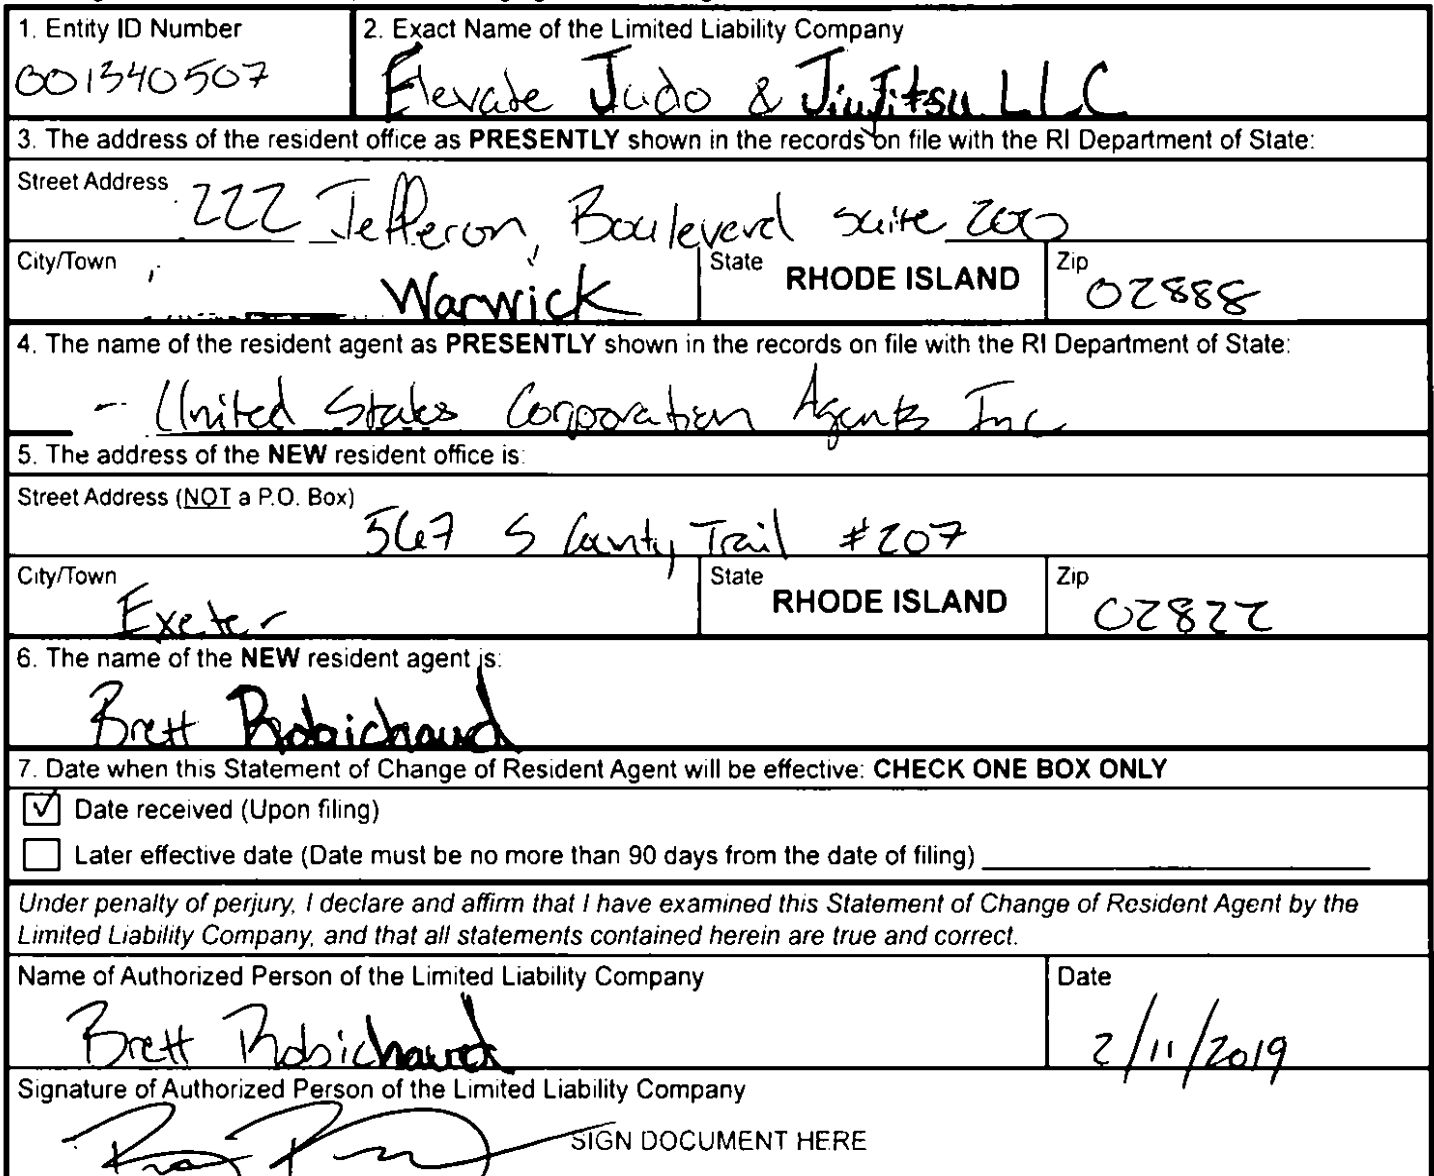 1. Entity ID Number
001340507
2. Exact Name of the Limited Liability Company
Elevate Judo & JiuJitsu LLC
3. The address of the resident office as PRESENTLY shown in the records on file with the RI Department of State:
Street Address
222 Jefferon, Boulevard suite 200
City/Town
Warwick
State
RHODE ISLAND
Zip
02888
4. The name of the resident agent as PRESENTLY shown in the records on file with the RI Department of State:
- United States Corporation Agents Inc
5. The address of the NEW resident office is:
Street Address (NOT a P.O. Box)
567 S County Trail #207
City/Town
Exeter
State
RHODE ISLAND
Zip
02822
6. The name of the NEW resident agent is:
Brett Robichaud
7. Date when this Statement of Change of Resident Agent will be effective: CHECK ONE BOX ONLY
Date received (Upon filing)
Later effective date (Date must be no more than 90 days from the date of filing)
Under penalty of perjury, I declare and affirm that I have examined this Statement of Change of Resident Agent by the
Limited Liability Company, and that all statements contained herein are true and correct.
Name of Authorized Person of the Limited Liability Company
Brett Robichaud
Date
2/11/2019
Signature of Authorized Person of the Limited Liability Company
SIGN DOCUMENT HERE